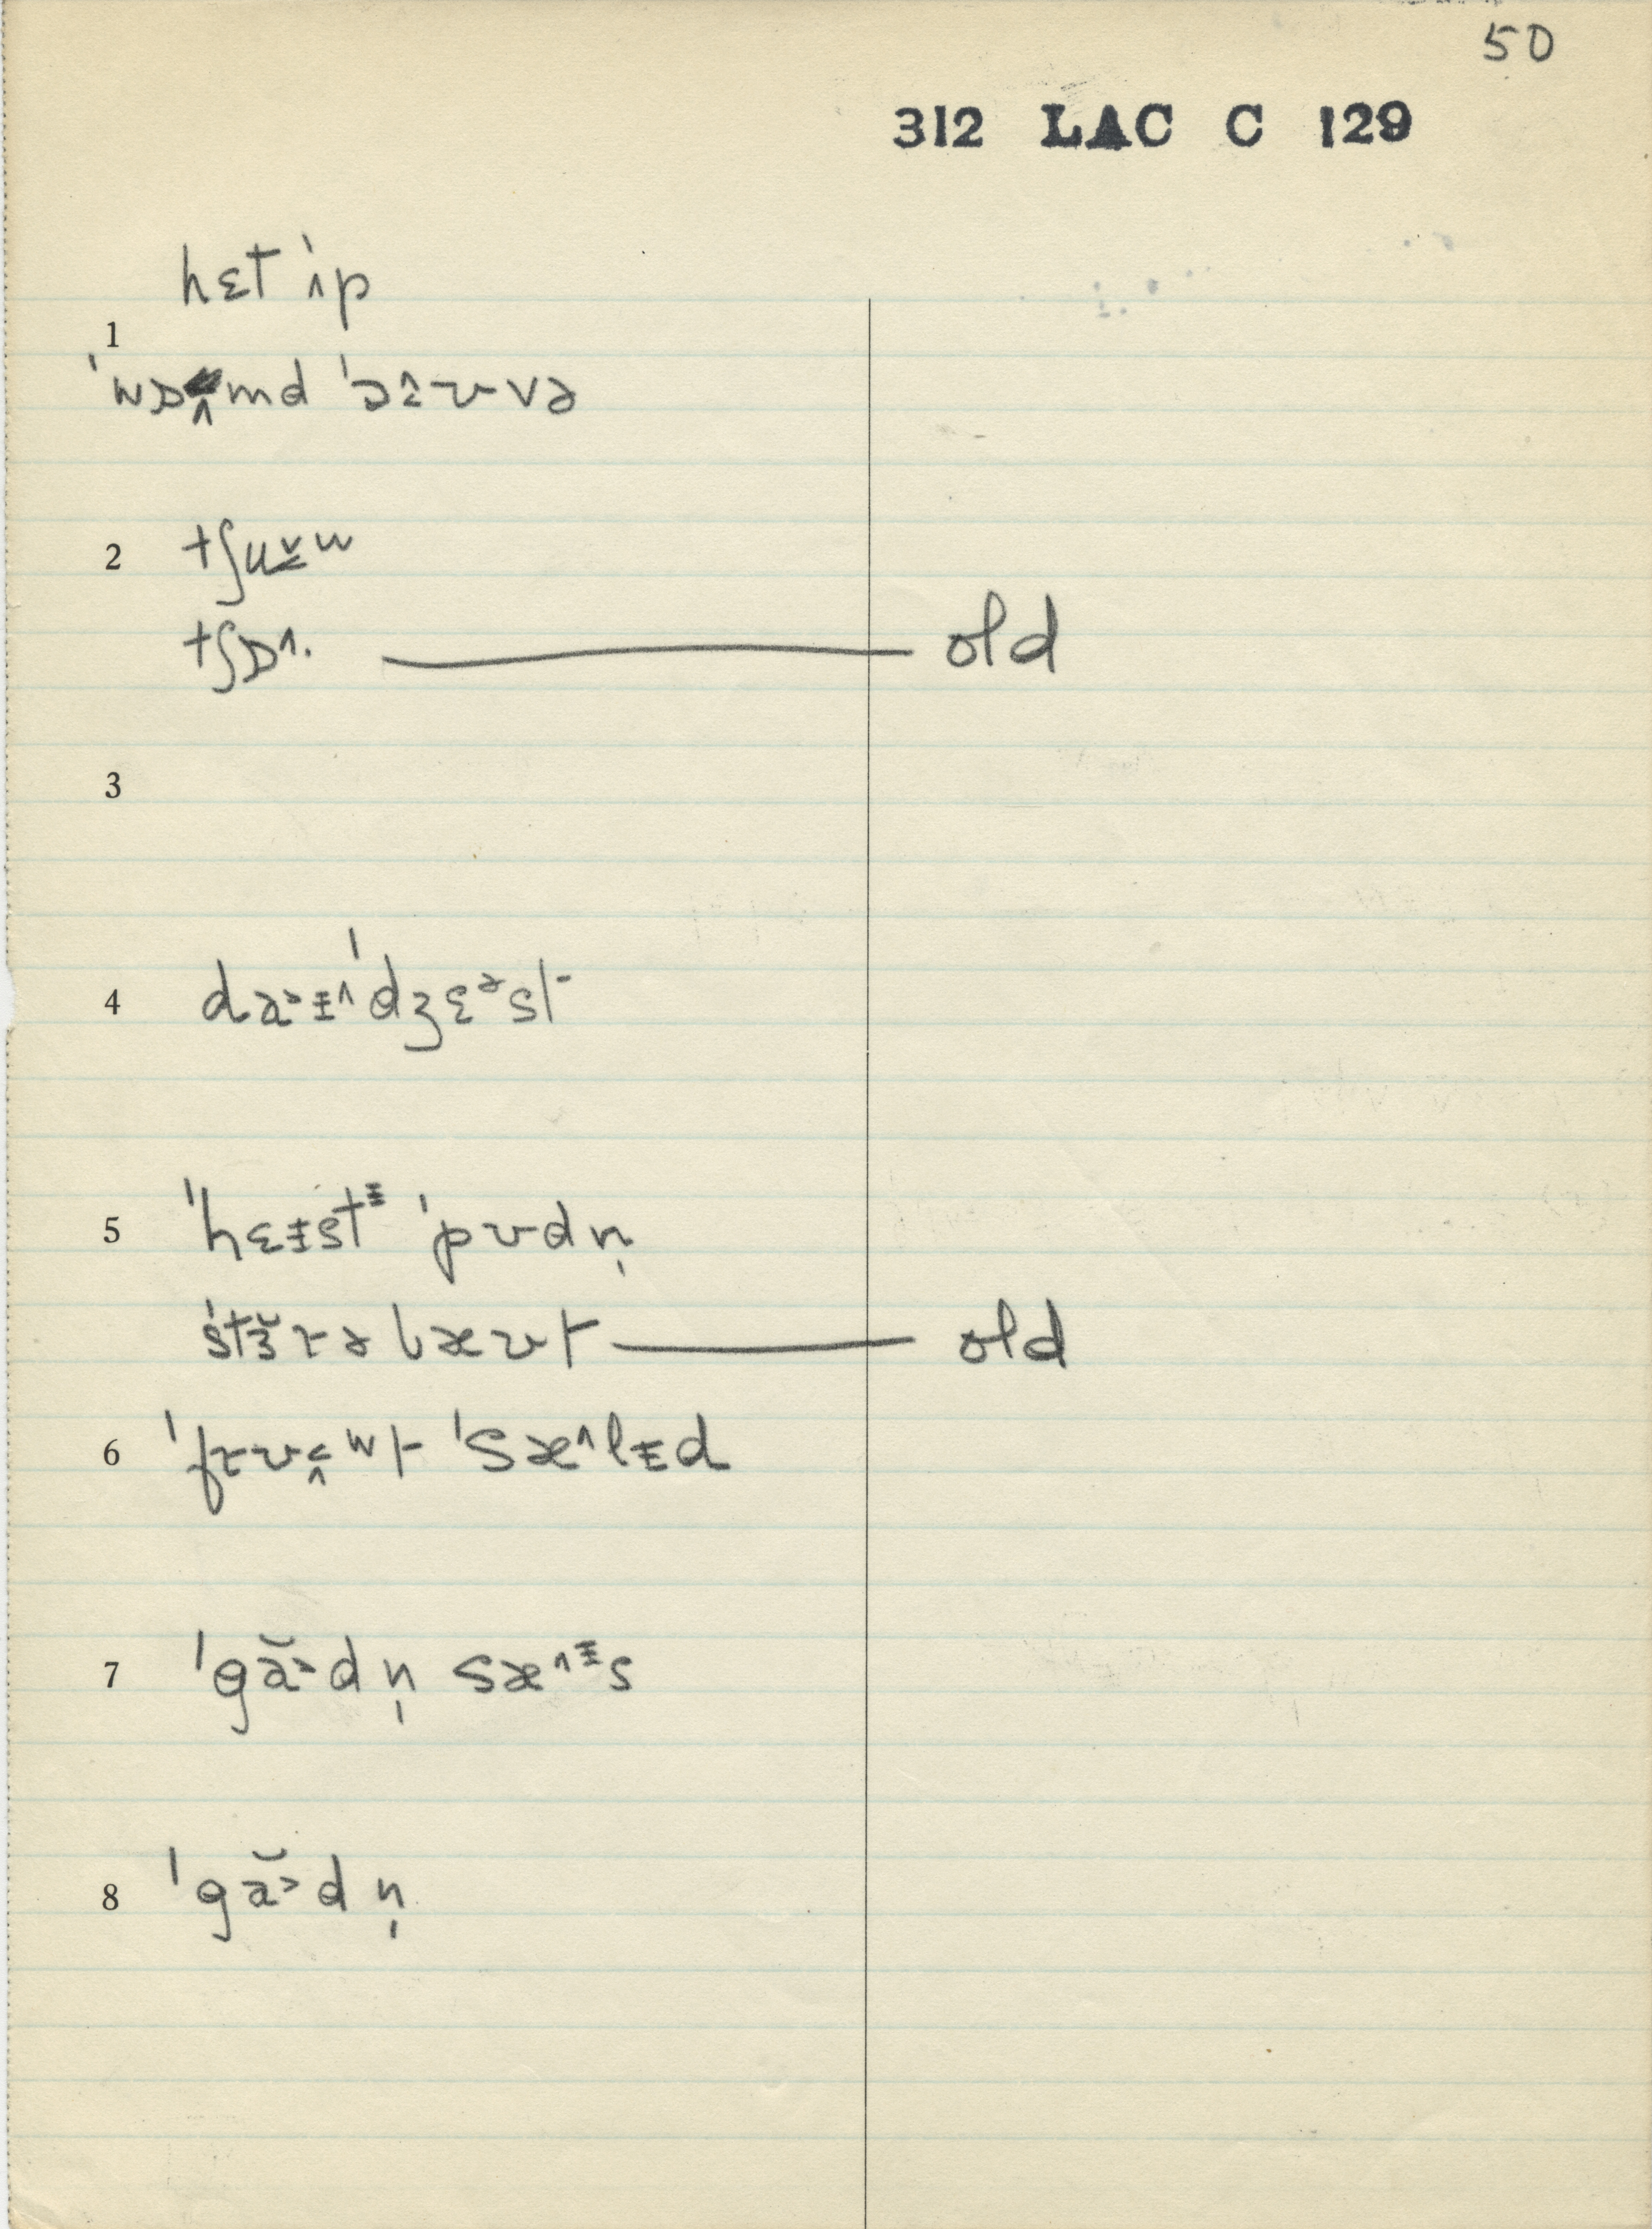 50
312 LAC C 129
hɛt ˈɪp
1
ˈwɒmd ˈɔʊvə
2 tʃu̬w
tʃɒ^. old
3
4 daɪˈdʒɛᵊst
5 ˈhɛɪstᶤ ˈpʊdn̩
ˈstɜ̆rəbæʊt old
6 ˈfrʊʷt ˈsæ^lɨd
7 ˈgă˃dn̩ sæ^ᶤs
8 ˈgă˃dn̩